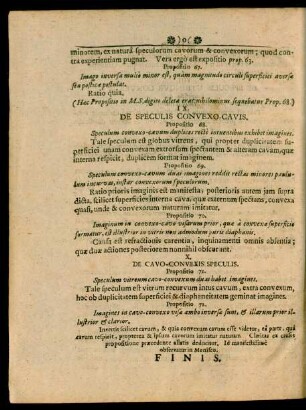 )o(
minorem, ex natura speculorum cavorum & convexorum; quod con-
tra experientiam pugnat. Vera ergo est expositio prop. 63.
Propositio 67.
Imago inversa multo minor est, quam magnitudo circuli superficiei aversæ
postulat.
Ratio quia,
(Hæc Propositio in M.S. digito deleta erat, nihilominus sequebatur Prop. 68.)
IX.
DE SPECULIS CONVEXO-CAVIS.
Propositio 68.
Speculum convexo-cavum duplices recti intuentibus exhibet imagines.
Tale speculum est globus vitreus, qui propter duplicitatem su-
perficiei unam convexam exteriorem spectantem & alteram cavam, quæ
interna respicit, duplicem format imaginem.
Propositio 69.
Speculum convexo-cavum duas imagines reddit rectas minores paulu-
lum incurvas, instar convexorum speculorum.
Ratio prioris imaginis est manifesta: posterioris autem jam supra
dicta, scilicet superficiei interna cava, quæ externam spectans, convexa
quasi, unde & convexorum naturam imitatur.
Propositio 70.
Imaginum in convexo-cavo visarum prior, quæ à convexa superficie
formatur, est illustrior ac vivior mus admodum juris diaphani.
Causa est refractionis carentia, inquinamenti omnis absentia;
quæ duæ actiones posteriorem nonnihil obscurant.
X.
DE CAVO-CONVEXIS SPECULIS.
Propositio 71.
Speculum vitreum cavo-convexum duas habet imagines.
Tale speculum est vitrum recurvum intus cavum, extra convexum,
hoc ob duplicitatem superficiei & diaphaneitatem geminat imagines.
Propositio 72.
Imagines in cavo-convexo visæ ambæ inversæ sunt, & illarum prior il-
lustrior & clarior.
Inversæ scilicet cavum, & quia convexum cavum esse videtur, ex parte, qua
cavum respicit, propterea & ipsum cavorum imitatur naturam. Claritas ex causis
propositione præcedente allatis deducitur, id manifestissime
observatur in Marisco.
FINIS.